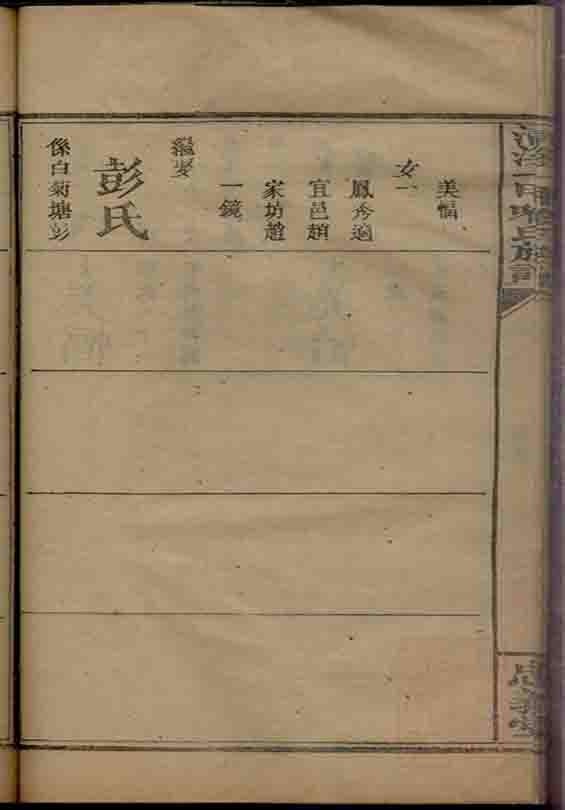 美幅
女一
鳳秀適
宜邑趙
家坊趙
一鏡
繼娶
彭氏
係白菊塘彭
氏族譜